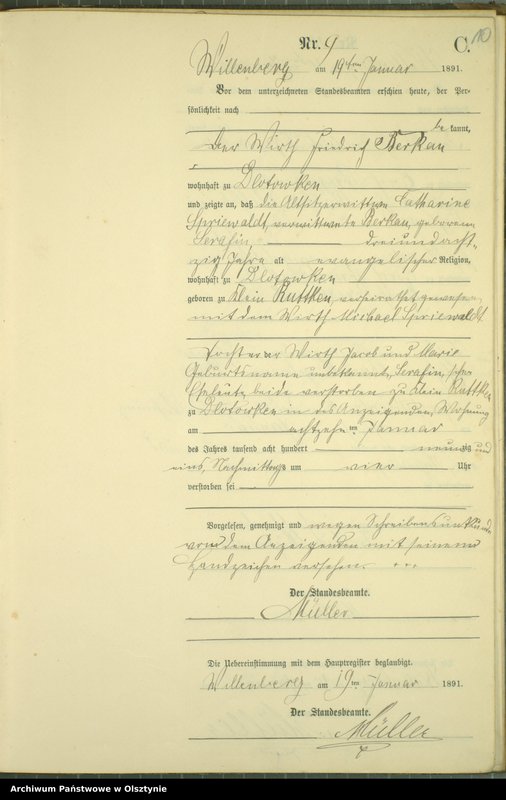 10
Nr. 9
C.
Willenberg am 19ten Januar 1891.
Vor dem unterzeichneten Standesbeamten erschien heute, der Per-
sönlichkeit nach
be kannt,
der Wirth Friedrich Berkau
wohnhaft zu Blotowken
und zeigte an, daß die Altsitzerwittwe Catharine
Spriewaldt, verwittwete Berkau, geborene
Serafin, dreiundacht-
zig Jahre alt evangelischer Religion,
wohnhaft zu Blotowken
geboren zu Klein Ruttken, verheirathet gewesen
mit dem Wirth Michael Spriewaldt
Tochter der Wirth Jacob und Marie
Geburtsname unbekannt, Serafin, schen
Eheleute, beide verstorben zu Klein Ruttken
zu Blotowken in des Anzeigenden Wohnung
am achtzehnten Januar
des Jahres tausend acht hundert neunzig und
eins, Nachmittags um vier Uhr
verstorben sei
Vorgelesen, genehmigt und wegen Schreibensunkunde
von dem Anzeigenden mit seinem
Handzeichen versehen. +++
Der Standesbeamte.
Müller
Die Uebereinstimmung mit dem Hauptregister beglaubigt.
Willenberg am 19ten Januar 1891.
Der Standesbeamte.
Müller
Archiwum Państwowe w Olsztynie